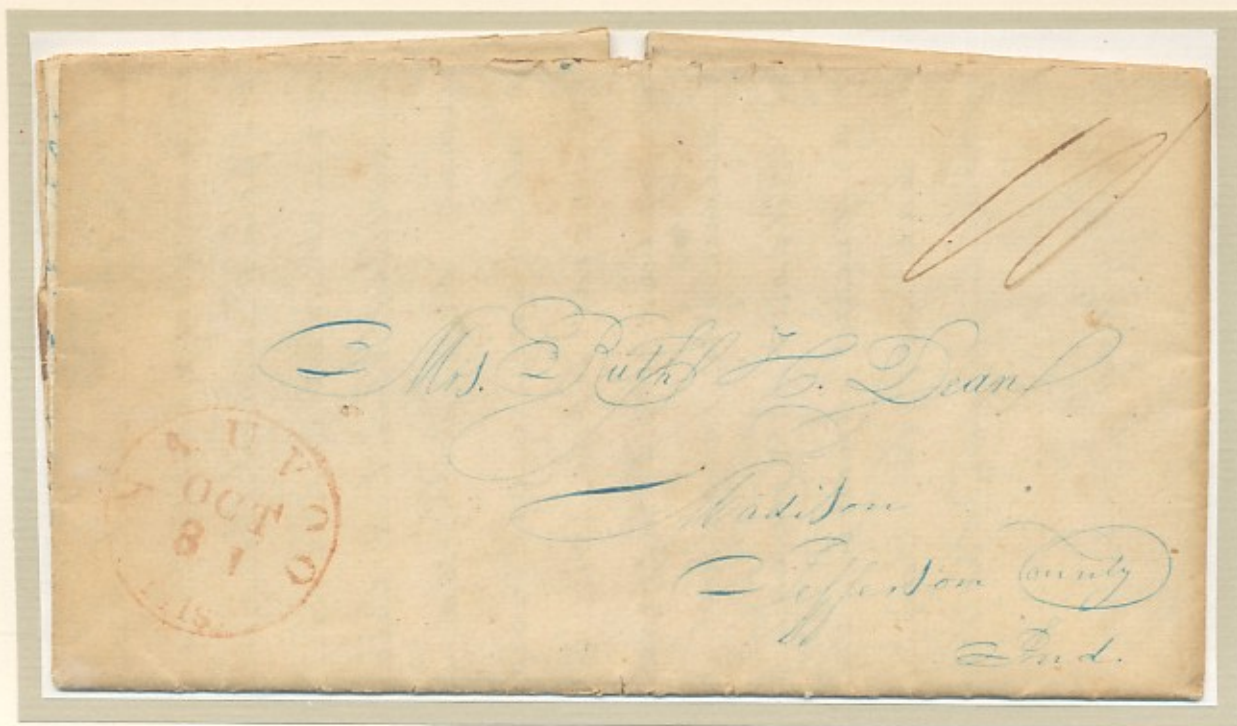 10
Mrs. Ruth H. Dean
Madison
Jefferson County
Ind.
NAUVOO
OCT
31
ILLS.